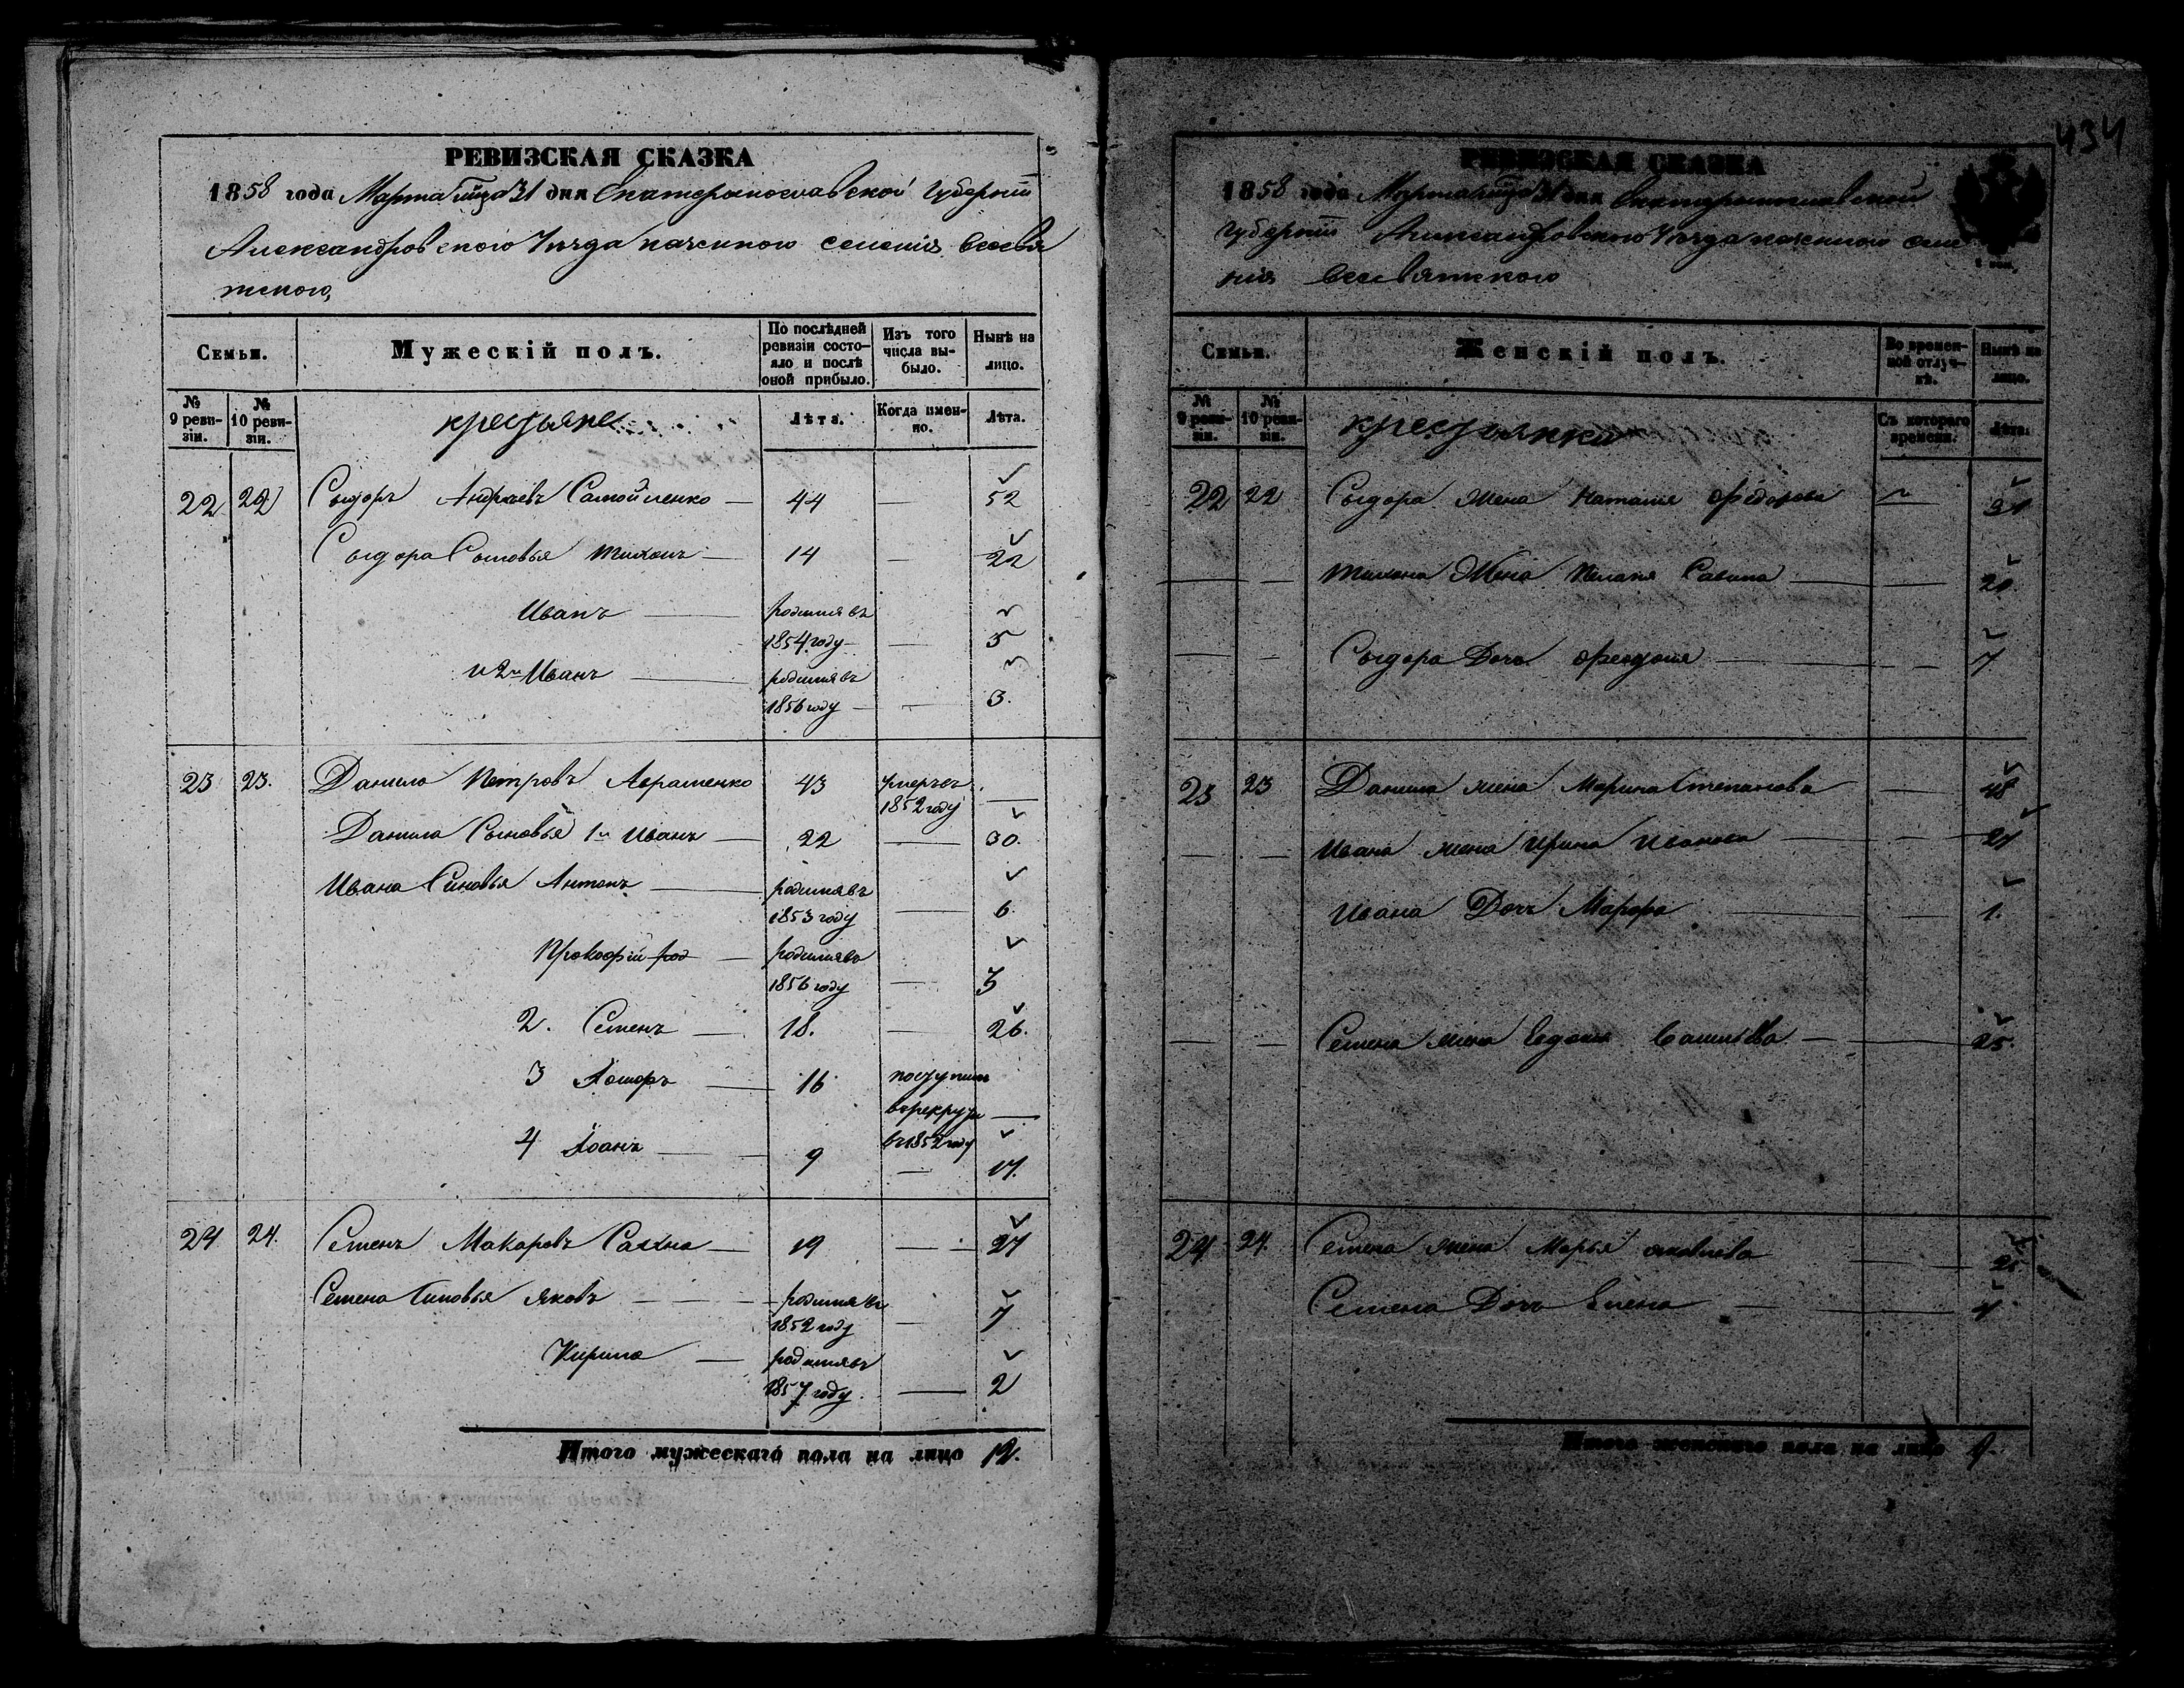 РЕВИЗСКАЯ СКАЗКА
1858 года Марта м҃ца 31 дня Екатеринославской Губерніи
Александровского Уезда казенного селенія Всесвя
тского,
Семьи.
Мужескій полъ.
По послѣдней ревизіи состо-
яло и послѣ
оной прибыло.
Изъ того
числа вы-
было.
Нынѣ на
лицо.
№ 9 реви-
зіи.
№ 10 реви-
зіи.
крестьяне
Лѣта.
Когда имен-
но.
Лѣта.
22 22 Сыдоръ Андреевъ Самойленко — 44 — 52
Сыдора Сыновья Тихонъ — 14 — 22
Иванъ — родился въ
1854 году — — 5
и 2й Иванъ — родился въ
1856 году — — 3.
23 23. Данило Петровъ Авраменко 43 умеръ въ
1852 году —
Данила Сыновья 1й Иванъ — 22 — 30.
Ивана Синовья Антонъ — родился въ
1853 году — 6.
Прокофій род — родился въ
1856 году — 3
2. Семенъ — 18. — 26.
3 — 16 поступилъ
в рекруты —
въ 1852 году
4 — 9 — 17.
24 24. Семенъ Макаровъ Сахно — 19 — 27
Семена Синовья Яковъ — родился въ
1852 году — 7
Кирило — родился въ
1857 году. — 2
Итого мужескаго пола на лицо 12.
434
РЕВИЗСКАЯ СКАЗКА
1858 года Марта м҃ца 31 дня Екатеринославской
Губерніи Александровского Уезда казенного селе
нія Всесвятского
Семьи.
Женскій полъ.
Во времен-
ной отлуч-
кѣ.
Нынѣ на
лицо.
№ 9 реви-
зіи.
№ 10 реви-
зіи.
крестьянки
Съ котораго
времени.
Лѣта.
22 22 Сыдора жена Наталия Федорова —
Тихона Жена Пелагея Савина —
Сыдора Дочь Феодосия — 7
23 23 Данила жена Марина Степанова — 48
Ивана жена Ирина Иванова — 27
Ивана Дочь Марфа — 1.
Семена жена Евдокия — 25.
24 24. Семена жена Марья Яковлева —
Семена Дочь Елена —
Итого женскаго пола на лицо